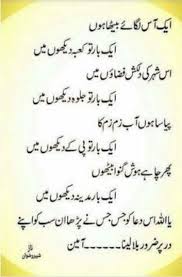 ایک آس لگائے بیٹھا ہوں
ایک بار تو کعبہ دیکھوں میں
اس شہر کی دلکش فضاؤں میں
ایک بار تو جلوہ دیکھوں میں
پیاسا ہوں آب زم زم کا
ایک بار تو پی کے دیکھوں میں
پھر چاہے ہوش گنوا بیٹھوں
ایک بار مدینہ دیکھوں میں
یا اللہ اس دعا کو جس جس نے پڑھا ان سب کو اپنے
در پر ضرور بلا لینا۔۔۔۔۔۔ آمین